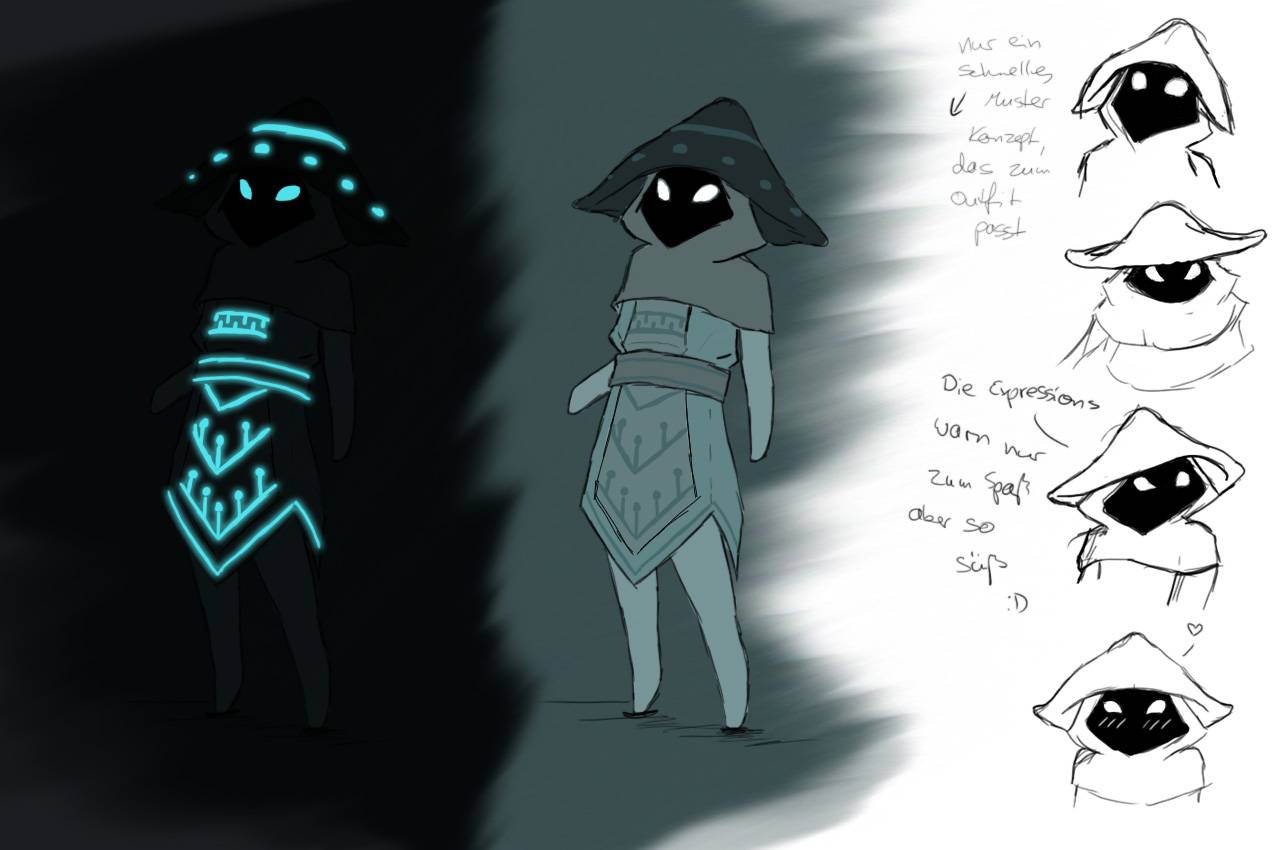 nur ein
schnelles
Muster
Konzept,
das zum
Outfit
passt
Die Expressions
warn nur
zum Spaß
aber so
süß
:D